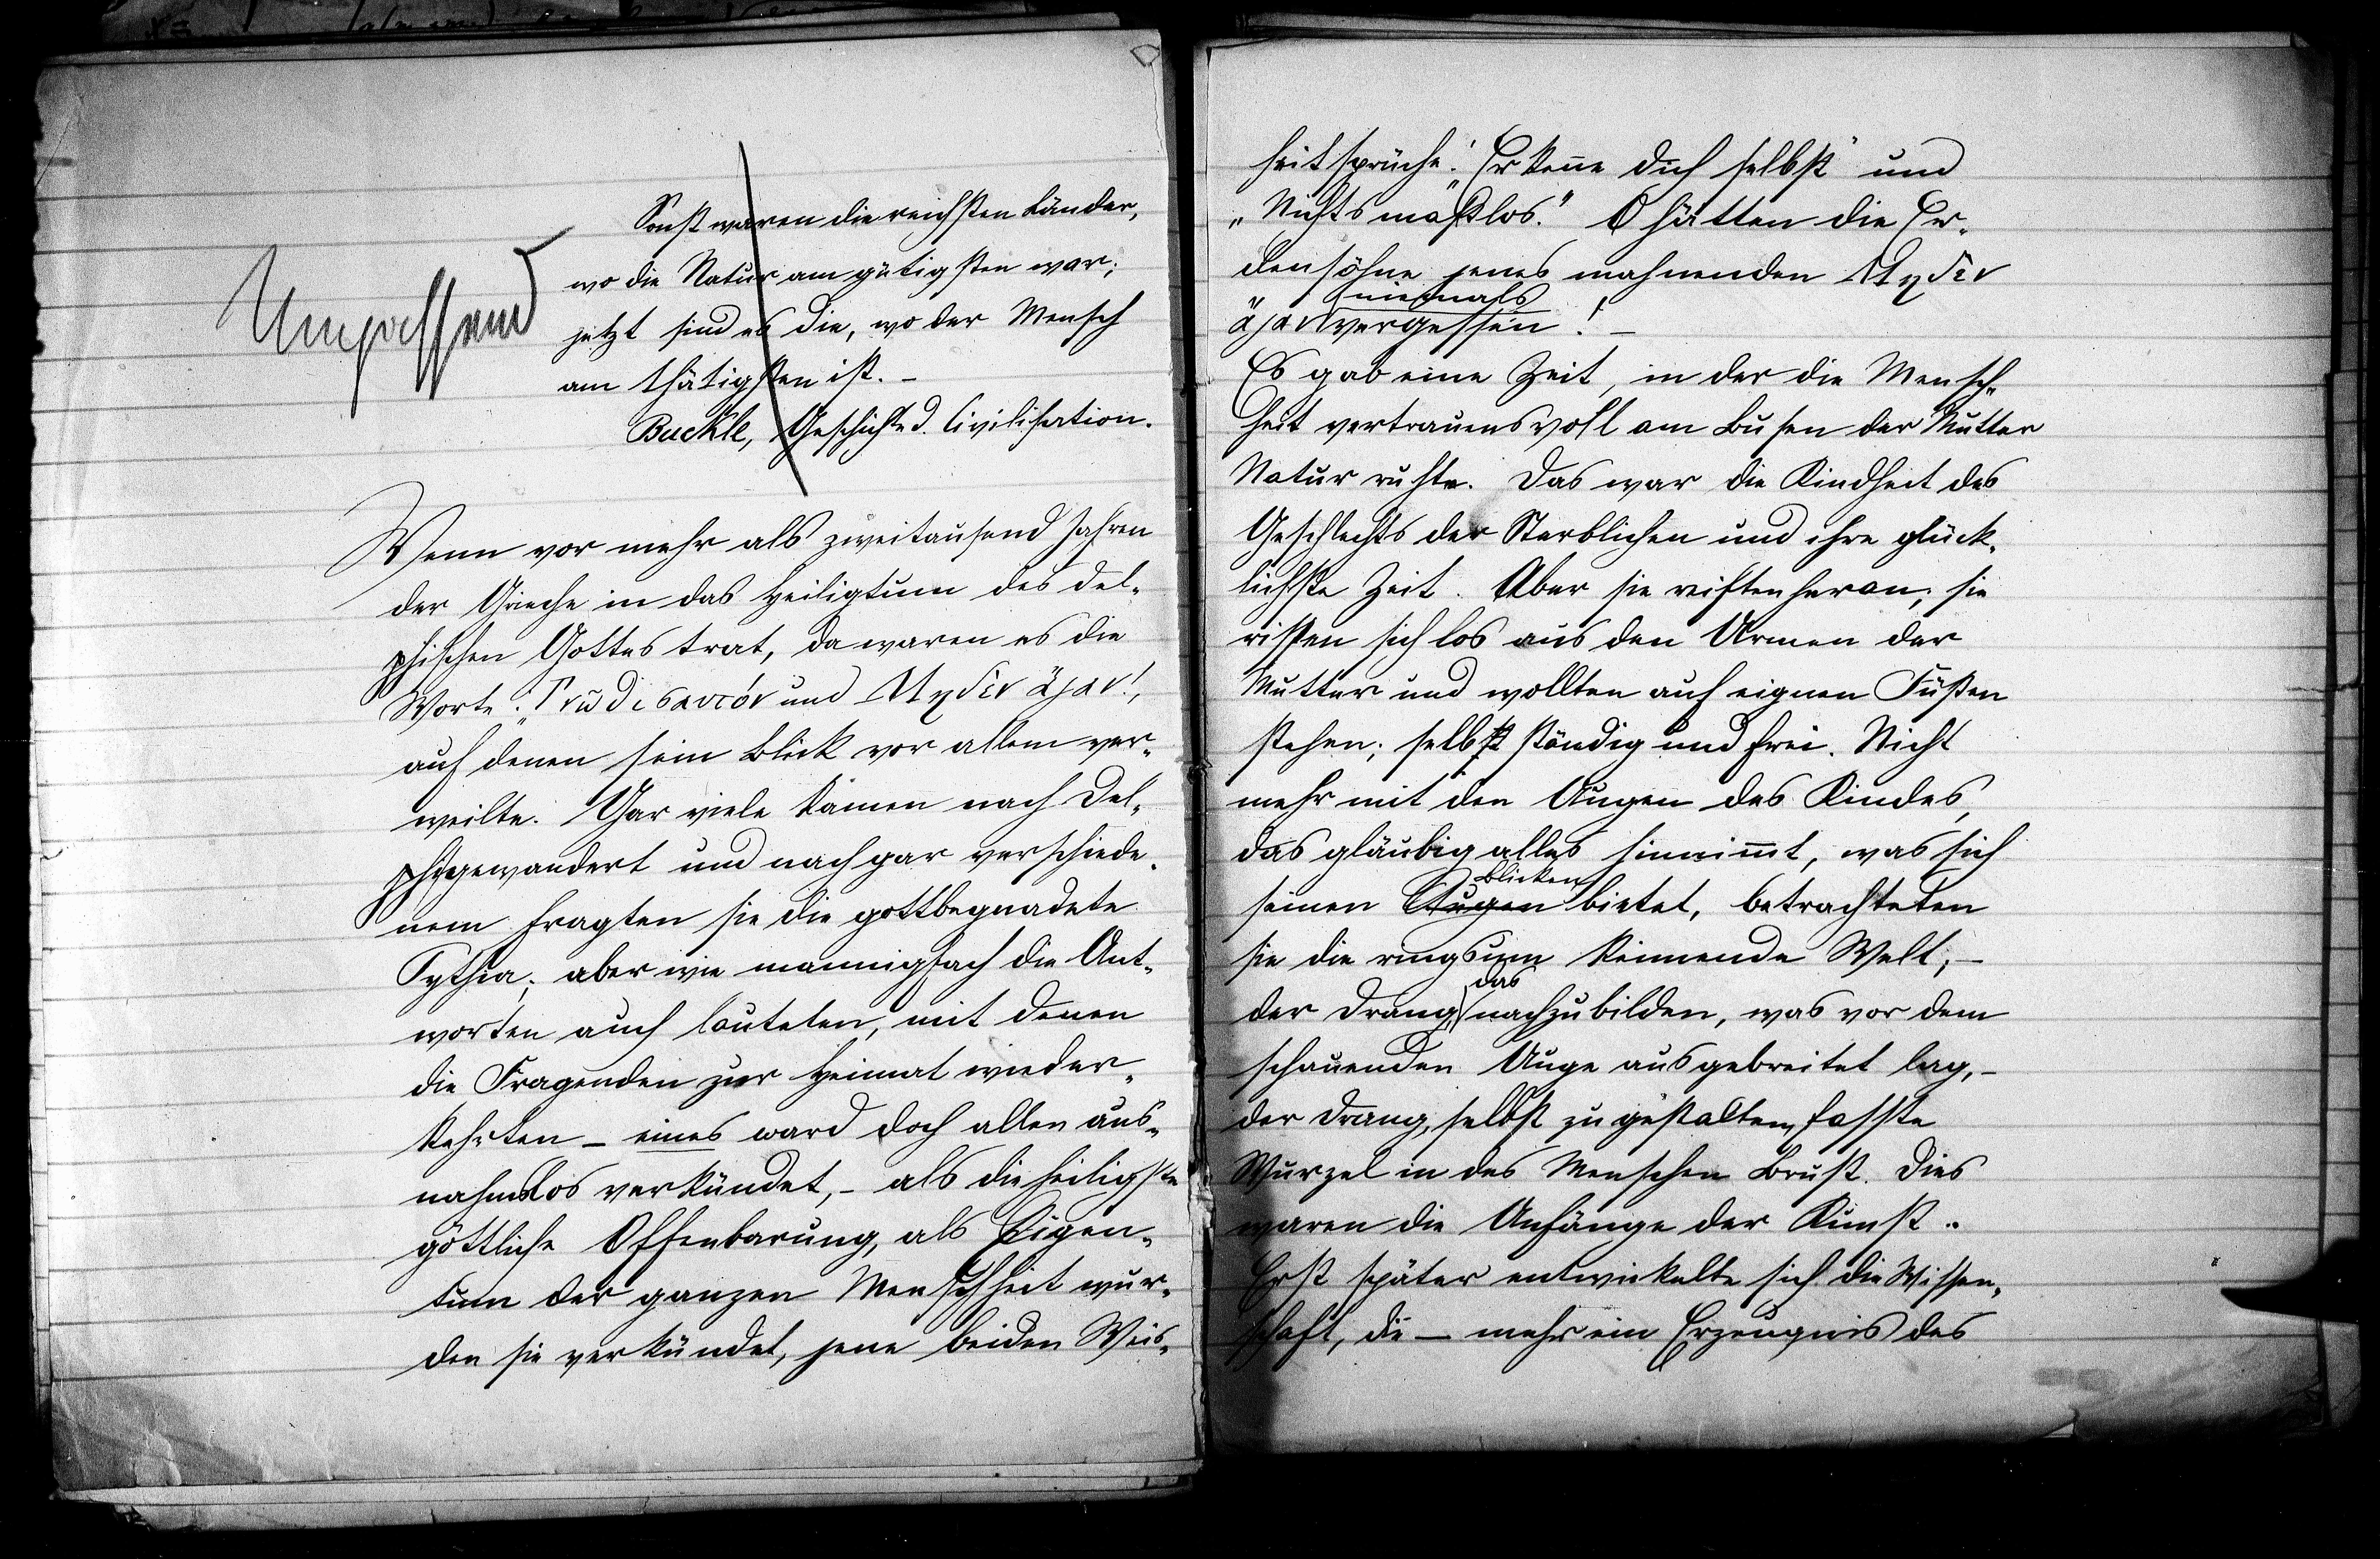 Unpassend
Sonst waren die reichsten Länder,
wo die Natur am gütigsten war;
jetzt sind es die, wo der Mensch
am thätigsten ist. –
Buckle, Geschichte d. Civilisation.
Wenn vor mehr als zweitausend Jahren
der Grieche in das Heiligtum des del-
phischen Gottes trat, da waren es die
Worte: „Γνῶθι σαυτόν und Μηδὲν ἄγαν!,
auf denen sein Blick vor allem ver-
weilte. Gar viele kamen nach Del-
phi gewandert und nach gar verschiede-
nem fragten sie die gottbegnadete
Pythia; aber wie mannigfach die Ant-
worten auch lauteten, mit denen
die Fragenden zur Heimat wieder-
kehrten – eines ward doch allen aus-
nahmslos verkündet, – als die heiligste
göttliche Offenbarung, als Eigen-
tum der ganzen Menschheit wur-
den sie verkündet, jene beiden Weis-
heitsprüche: „Erkenne dich selbst" und
„Nichts maßlos." O hätten die Er-
densöhne jenes mahnenden Μηδὲν
niemals
ἄγαν vergessen! –
Es gab eine Zeit, in der die Mensch-
heit vertrauensvoll am Busen der Mutter
Natur ruhte. Das war die Kindheit des
Geschlechts der Sterblichen und ihre glück-
lichste Zeit. Aber sie reiften heran; sie
rissen sich los aus den Armen der
Mutter und wollten auf eignen Füßen
stehen; selbstständig und frei. Nicht
mehr mit den Augen des Kindes,
das gläubig alles hinnimmt, was sich
Blicken
seinen Augen bietet, betrachteten
sie die ringsum keimende Welt; –
das
der Drang, nachzubilden, was vor dem
schauenden Auge ausgebreitet lag, –
der Drang, selbst zu gestalten, fasste
Wurzel in des Menschen Brust. Dies
waren die Anfänge der Kunst.
Erst später entwickelte sich die Wissen-
schaft, die – mehr ein Erzeugnis des